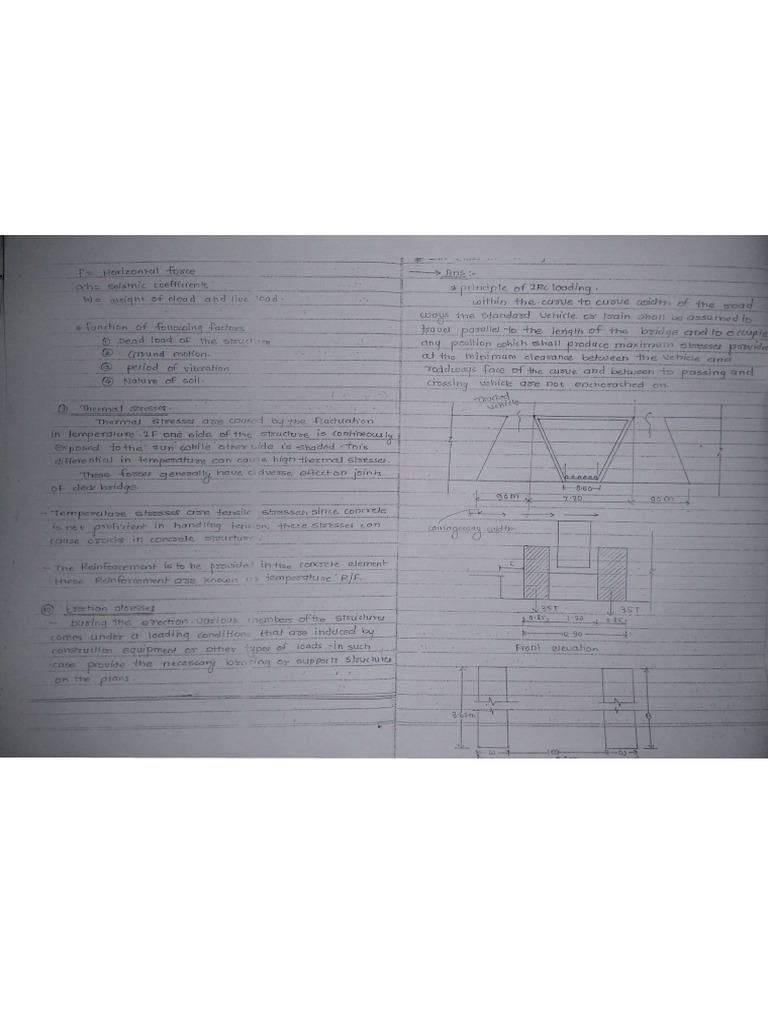 F= Horizontal force
αh= seismic coefficients
W= weight of dead and live load.
* function of following factors
① Dead load of the structure
② Ground motion.
③ period of vibration
④ Nature of soil.
Thermal stresses.
Thermal stresses are caused by the fluctuation
in temperature. If one side of the structure is continuously
exposed to the sun while other side is shaded. This
differential in temperature can cause high thermal stresses.
These forces generally have adverse effect on joints
of deck bridge.
- Temperature stresses are tensile stresses, since concrete
is not proficient in handling tension, these stresses can
cause cracks in concrete structure.
- The Reinforcement is to be provided in the concrete element
these Reinforcement are known as temperature R/F.
⑩ Erection stresses
- During the erection various members of the structures
comes under a loading condition that are induced by
construction equipment or other types of loads. In such
case provide the necessary bracing or supports structures
on the plans.
→ Ans :-
* principle of IRC loading.
within the curve to curve width of the road
ways the standard vehicle or train shall be assumed to
travel parallel to the length of the bridge and to occupie
any position which shall produce maximum stresses provided
at the minimum clearance between the vehicle and
roadways face of the curve and between to passing and
crossing vehicle are not enchorached on.
tracked
vehicle
3.60
90m 7.20 90m
carriageway width
C
35T 35T
0.85 1.20 0.85
2.90
Front elevation
W W